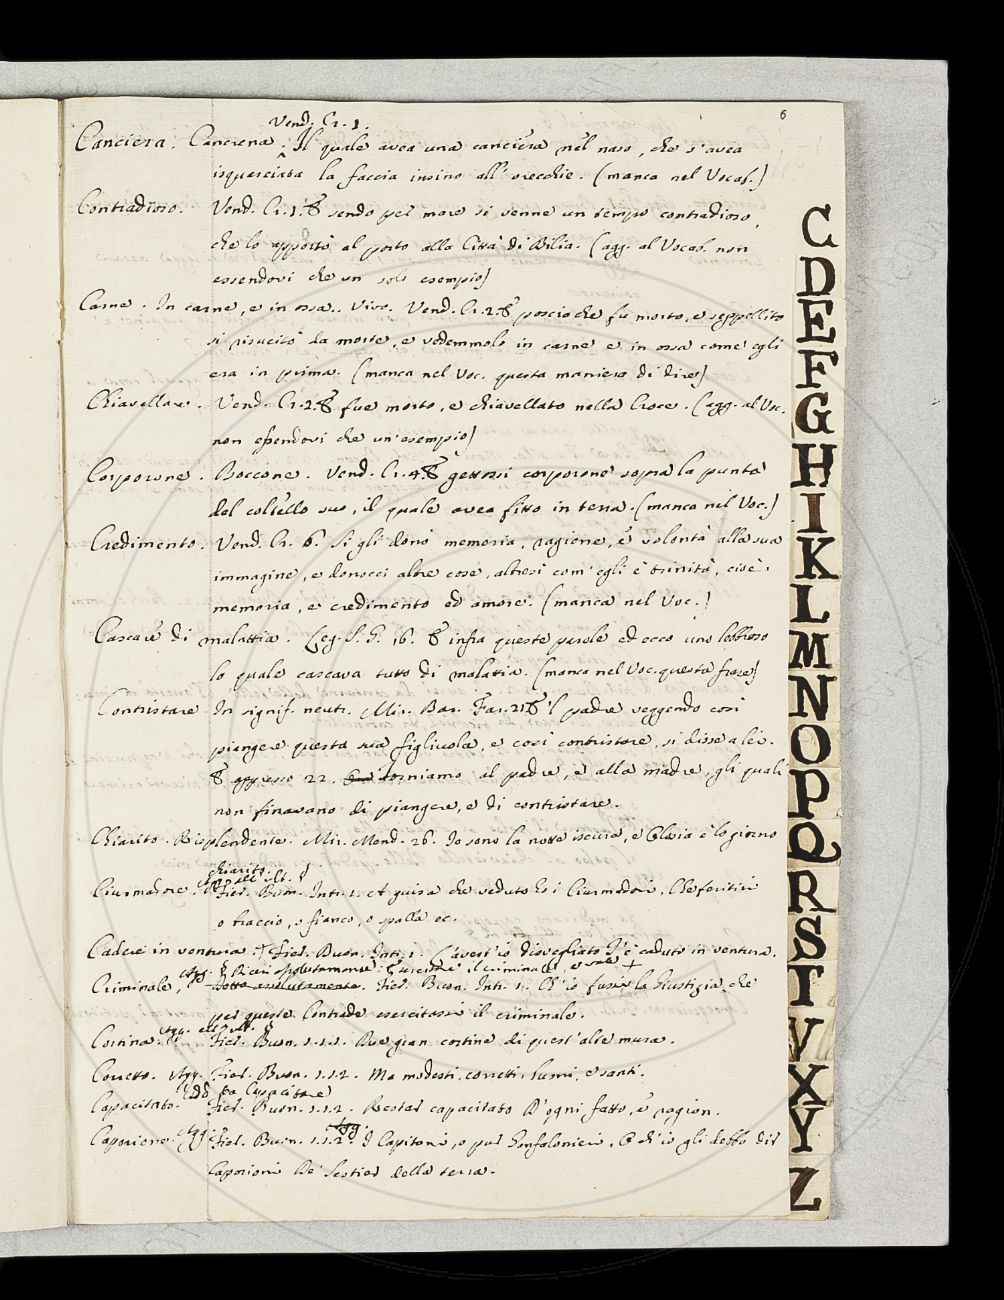 6
Vend. Cr. 1.
Canciera. Cancrena. Il quale avea una canciera nel naso, che s'avea
isquarciata la faccia insino all'orecchie. (manca nel Vocab.)
Contradioso. Vend. Cr. 1. sendo per mare si venne un tempo contradioso,
che lo apportò al porto alla Città di Bilia. (agg. al Vocab. non
essendovi che un solo esempio)
Carne. In carne, e in ossa. Vivo. Vend. Cr. 2. posciache fu morto, e seppellito
si risucitò da morte, e vedemmolo in carne e in ossa come egli
era in prima. (manca nel Voc. questa maniera di dire)
Chiavellare. Vend. Cr. 2. fue morto, e chiavellato nella Croce. (agg. al Voc.
non essendovi che un'esempio)
Corporone. Boccone. Vend. Cr. 4. gettossi corporone sopra la punta
del coltello suo, il quale avea fitto in terra. (manca nel Voc.)
Credimento. Vend. Cr. 6. Si gli donò memoria, ragione, e volontà alla sua
immagine, e donocci altre cose, altresì com'egli è trinità, cioè,
memoria, e credimento ed amore. (manca nel Voc.)
Cascare di malattia. Leg. S. G. 16. infra queste parole ed ecco uno lebbroso
lo quale cascava tutto di malattia. (manca nel Voc. questa frase)
Contristare. In signif. neutr. Mir. Bar. Far. 21. 'l padre veggendo così
piangere questa sua figliuola, e così contristare, si disse a lei.
appresso 22. torniamo al padre, e alla madre, gli quali
non finavano di piangere, e di contristare.
Chiarito. Risplendente. Mir. Mond. 26. Io sono la notte iscura, e Cloia è lo giorno
chiarito.
Ciurmadore. all' ult. Fier. Buon. Intr. 1. A guisa che veduto ho i Ciurmadori, Che feritisi
o braccio, o fianco, o spalla ec.
Cadere in ventura. + Fier. Buon. Intr. 1. L'avert'io disvegliato T'è caduto in ventura.
Agg. Dicesi assolutamente: esercitare il criminale, e vale +
Criminale, detto assolutamente. Fier. Buon. Intr. 1. Ch'io fussi la Giustizia, che
per queste Contrade esercitassi il criminale.
Agg. all' ult.
Cortina. Fier. Buon. 1.1.1. Due gran cortine di quest'alte mura.
Corretto. Agg. Fier. Buon. 1.1.2. Ma modesti, corretti, summi, e santi.
Add. da Capacitare
Capacitato. Fier. Buon. 1.1.2. Restar capacitato D'ogni fatto, e ragion.
Agg.
Caporione. Agg. Fier. Buon. 1.1.2. I Capitani, o pur Gonfalonieri, O ch'io gli debbo dir
Caporioni De' Sestier della terra.
C
D
E
F
G
H
I
K
L
M
N
O
P
Q
R
S
T
V
X
Y
Z